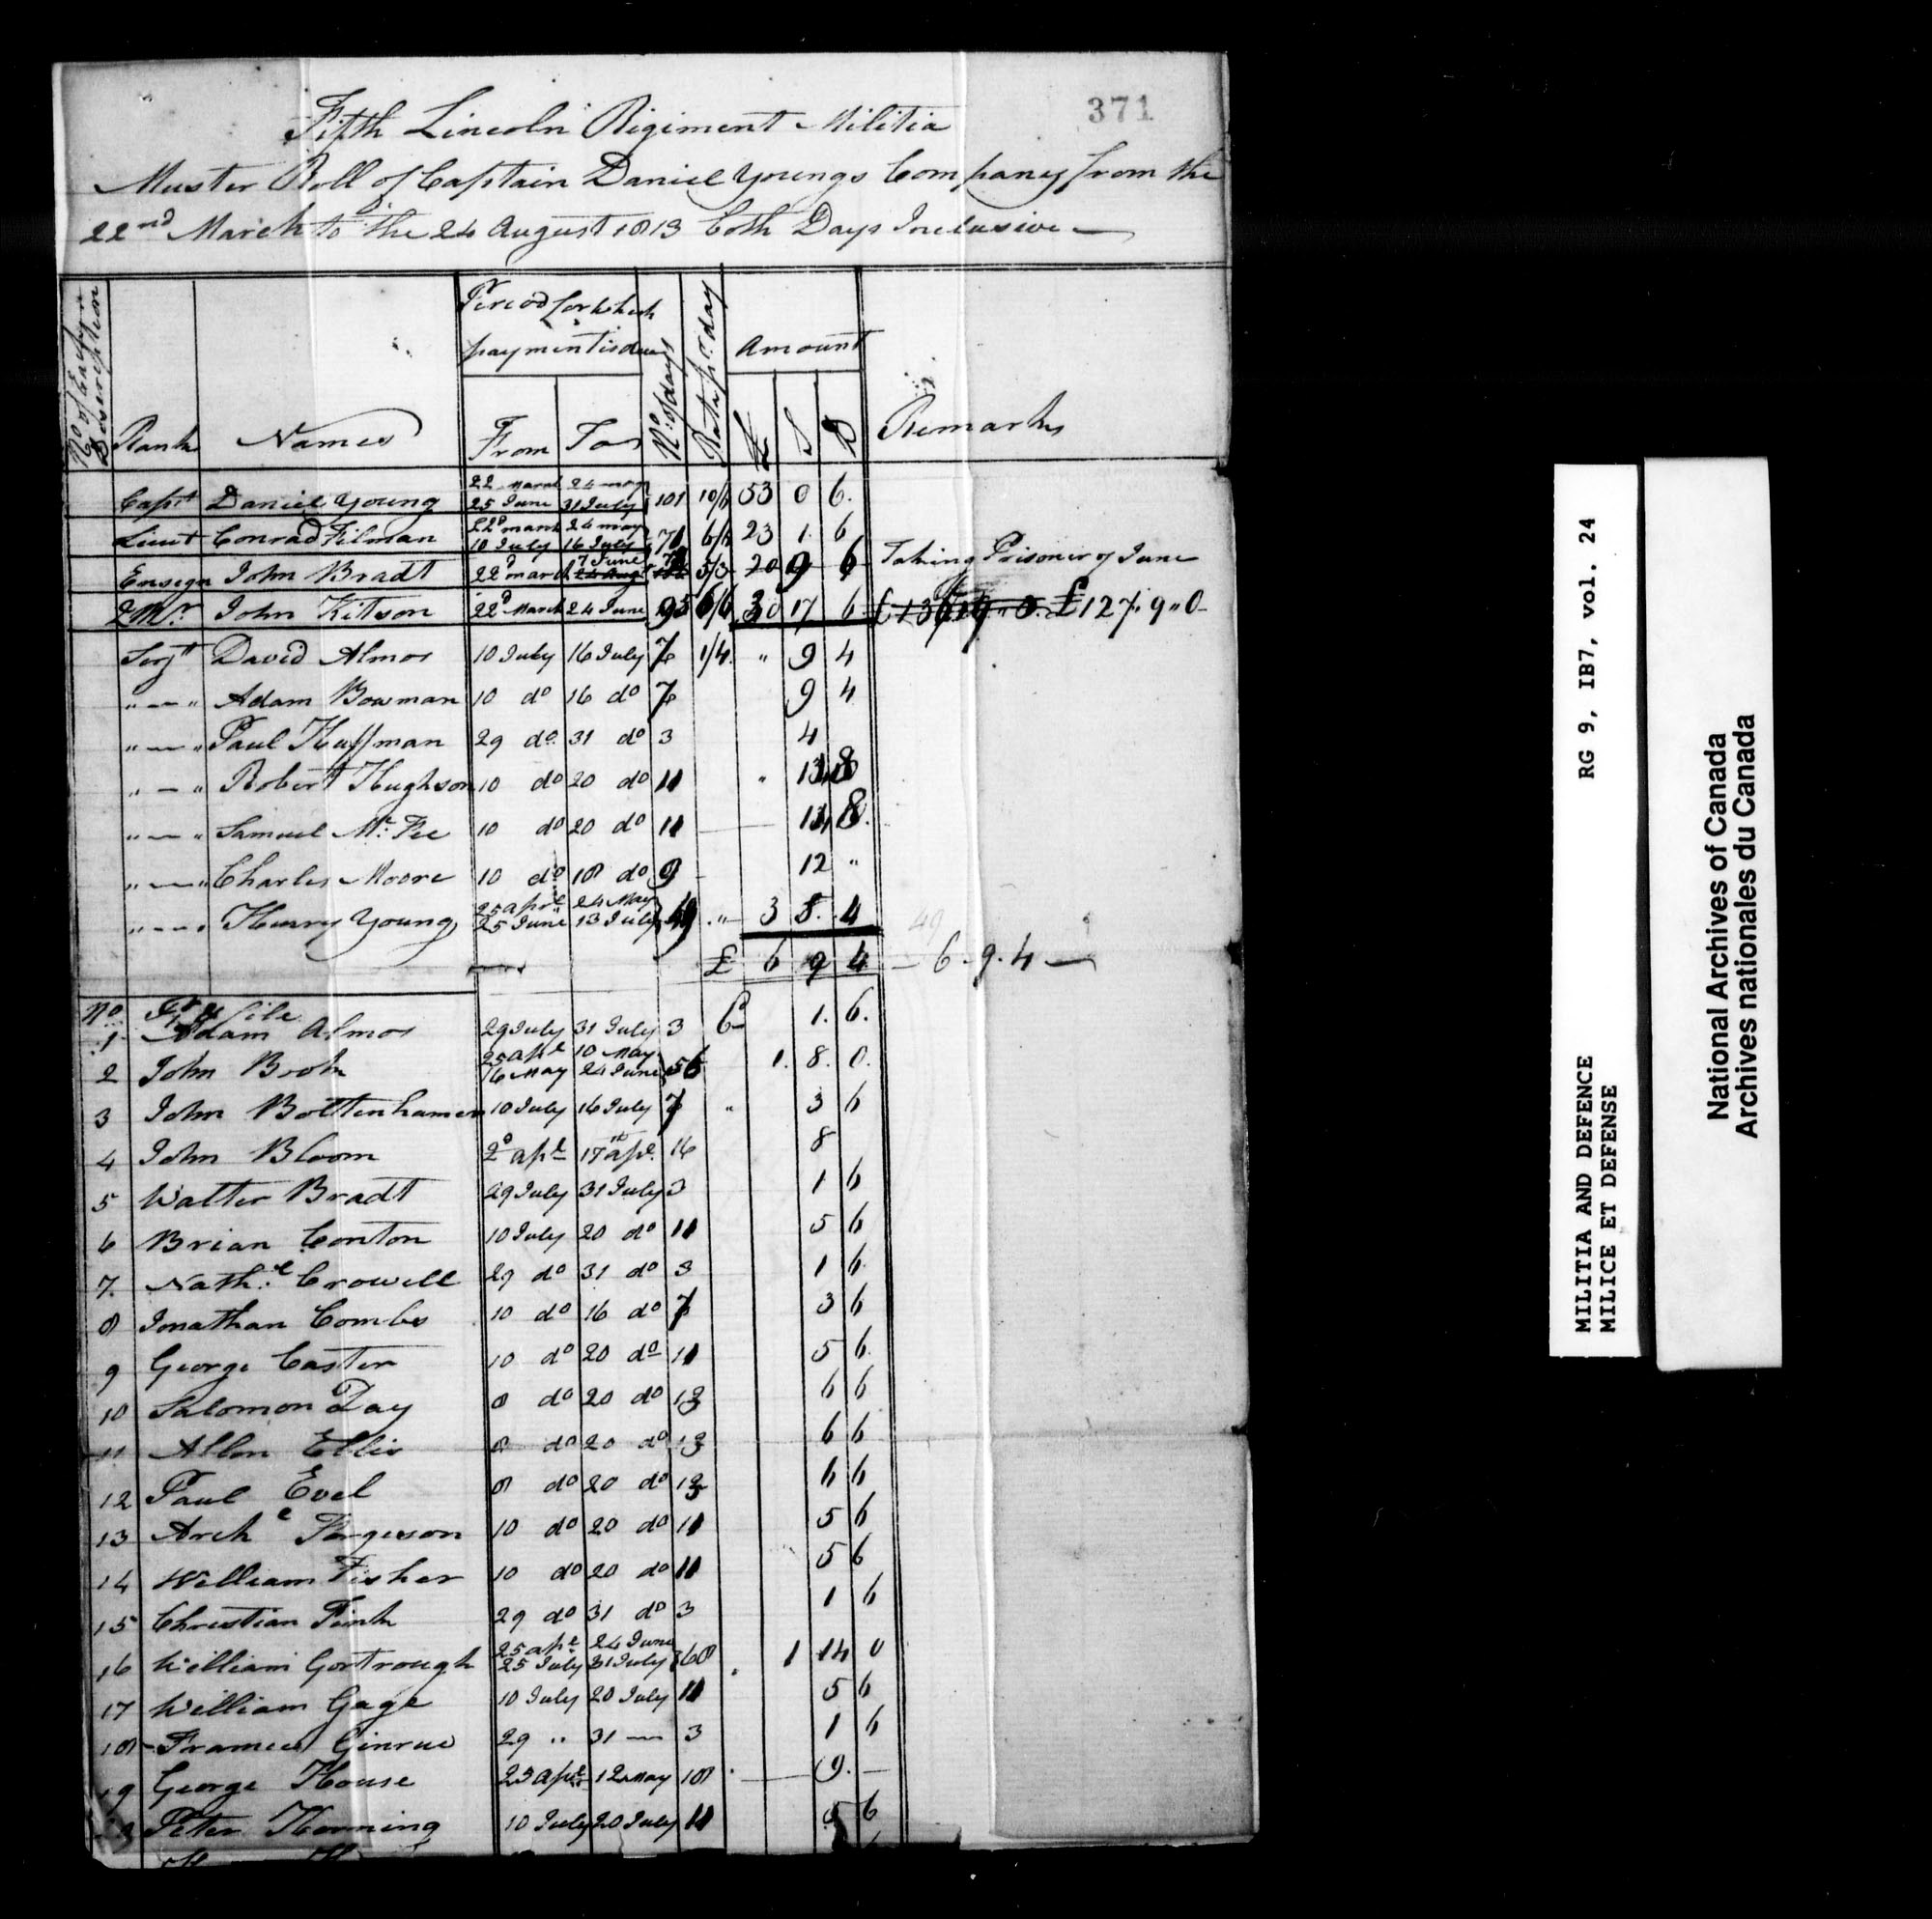 371
Fifth Lincoln Regiment Militia
Muster Roll of Captain Daniel Youngs Company from the
22nd March to the 24 August 1813 both Days Inclusive
No of Each Description
Rank
Names
Period for which payment is due
From
To
No. of days
Rate pr. day
Amount
£ S D
Remarks
Capt Daniel Young 22 March 24 May 25 June 31 July 101 10/6 53 0 6
Lieut Conrad Filman 22d March 24 May 10 July 16 July 71 6/6 23 1 6
Ensign John Bradt 22d March 7 June 5/3 20 9 6 Taking Prisoner 7 June
2Mr. John Kitson 22d March 24 June 95 6/6 30 17 6 £127 " 9 " 0
Serjt David Almos 10 July 16 July 7 1/4 " 9 4
" — " Adam Bowman 10 do 16 do 7 9 4
" — " Paul Huffman 29 do 31 do 3 4
" — " Robert Hughson 10 do 20 do 11 " 14 8
" — " Samuel Mc. Fee 10 do 20 do 11 14 8
" — " Charles Moore 10 do 18 do 9 12 "
" — " Henry Young 25 Aprl 24 May 25 June 13 July 49 " 3 5 4
49
£ 6 9 4 — 6 - 9 . 4 —
No
1 Adam Almos 29 July 31 July 3 6d 1. 6.
2 John Brohn 25 Apl 10 May 16 May 24 June 56 1. 8. 0.
3 John Bottenhamer 10 July 16 July 7 " 3 6
4 John Bloom 2d Apl 17th Apl 16 8
5 Walter Bradt 29 July 31 July 3 1 6
6 Brian Conton 10 July 20 do 11 5 6
7. Nath.l Crowell 29 do 31 do 3 1 6
8 Jonathan Combs 10 do 16 do 7 3 6
9 George Caster 10 do 20 do 11 5 6
10 Salomon Day 8 do 20 do 13 6 6
11 Allon Ellis 8 do 20 do 13 6 6
12 Paul Evel 8 do 20 do 13 6 6
13 Arch Fergeson 10 do 20 do 11 5 6
14 William Fisher 10 do 20 do 11 5 6
15 Christian Fink 29 do 31 do 3 1 6
16 William Gortrough 25 Apl 24 June 25 July 31 July 68 1 14 0
17 William Gage 10 July 20 July 11 5 6
18 Ginrue 29 " 31 — 3 1 6
19 George House 25 Apl 12 May 18 — 9. —
Peter Horning 10 July 20 July 11 5 6
MILITIA AND DEFENCE RG 9, IB7, vol. 24
MILICE ET DEFENSE
National Archives of Canada
Archives nationales du Canada